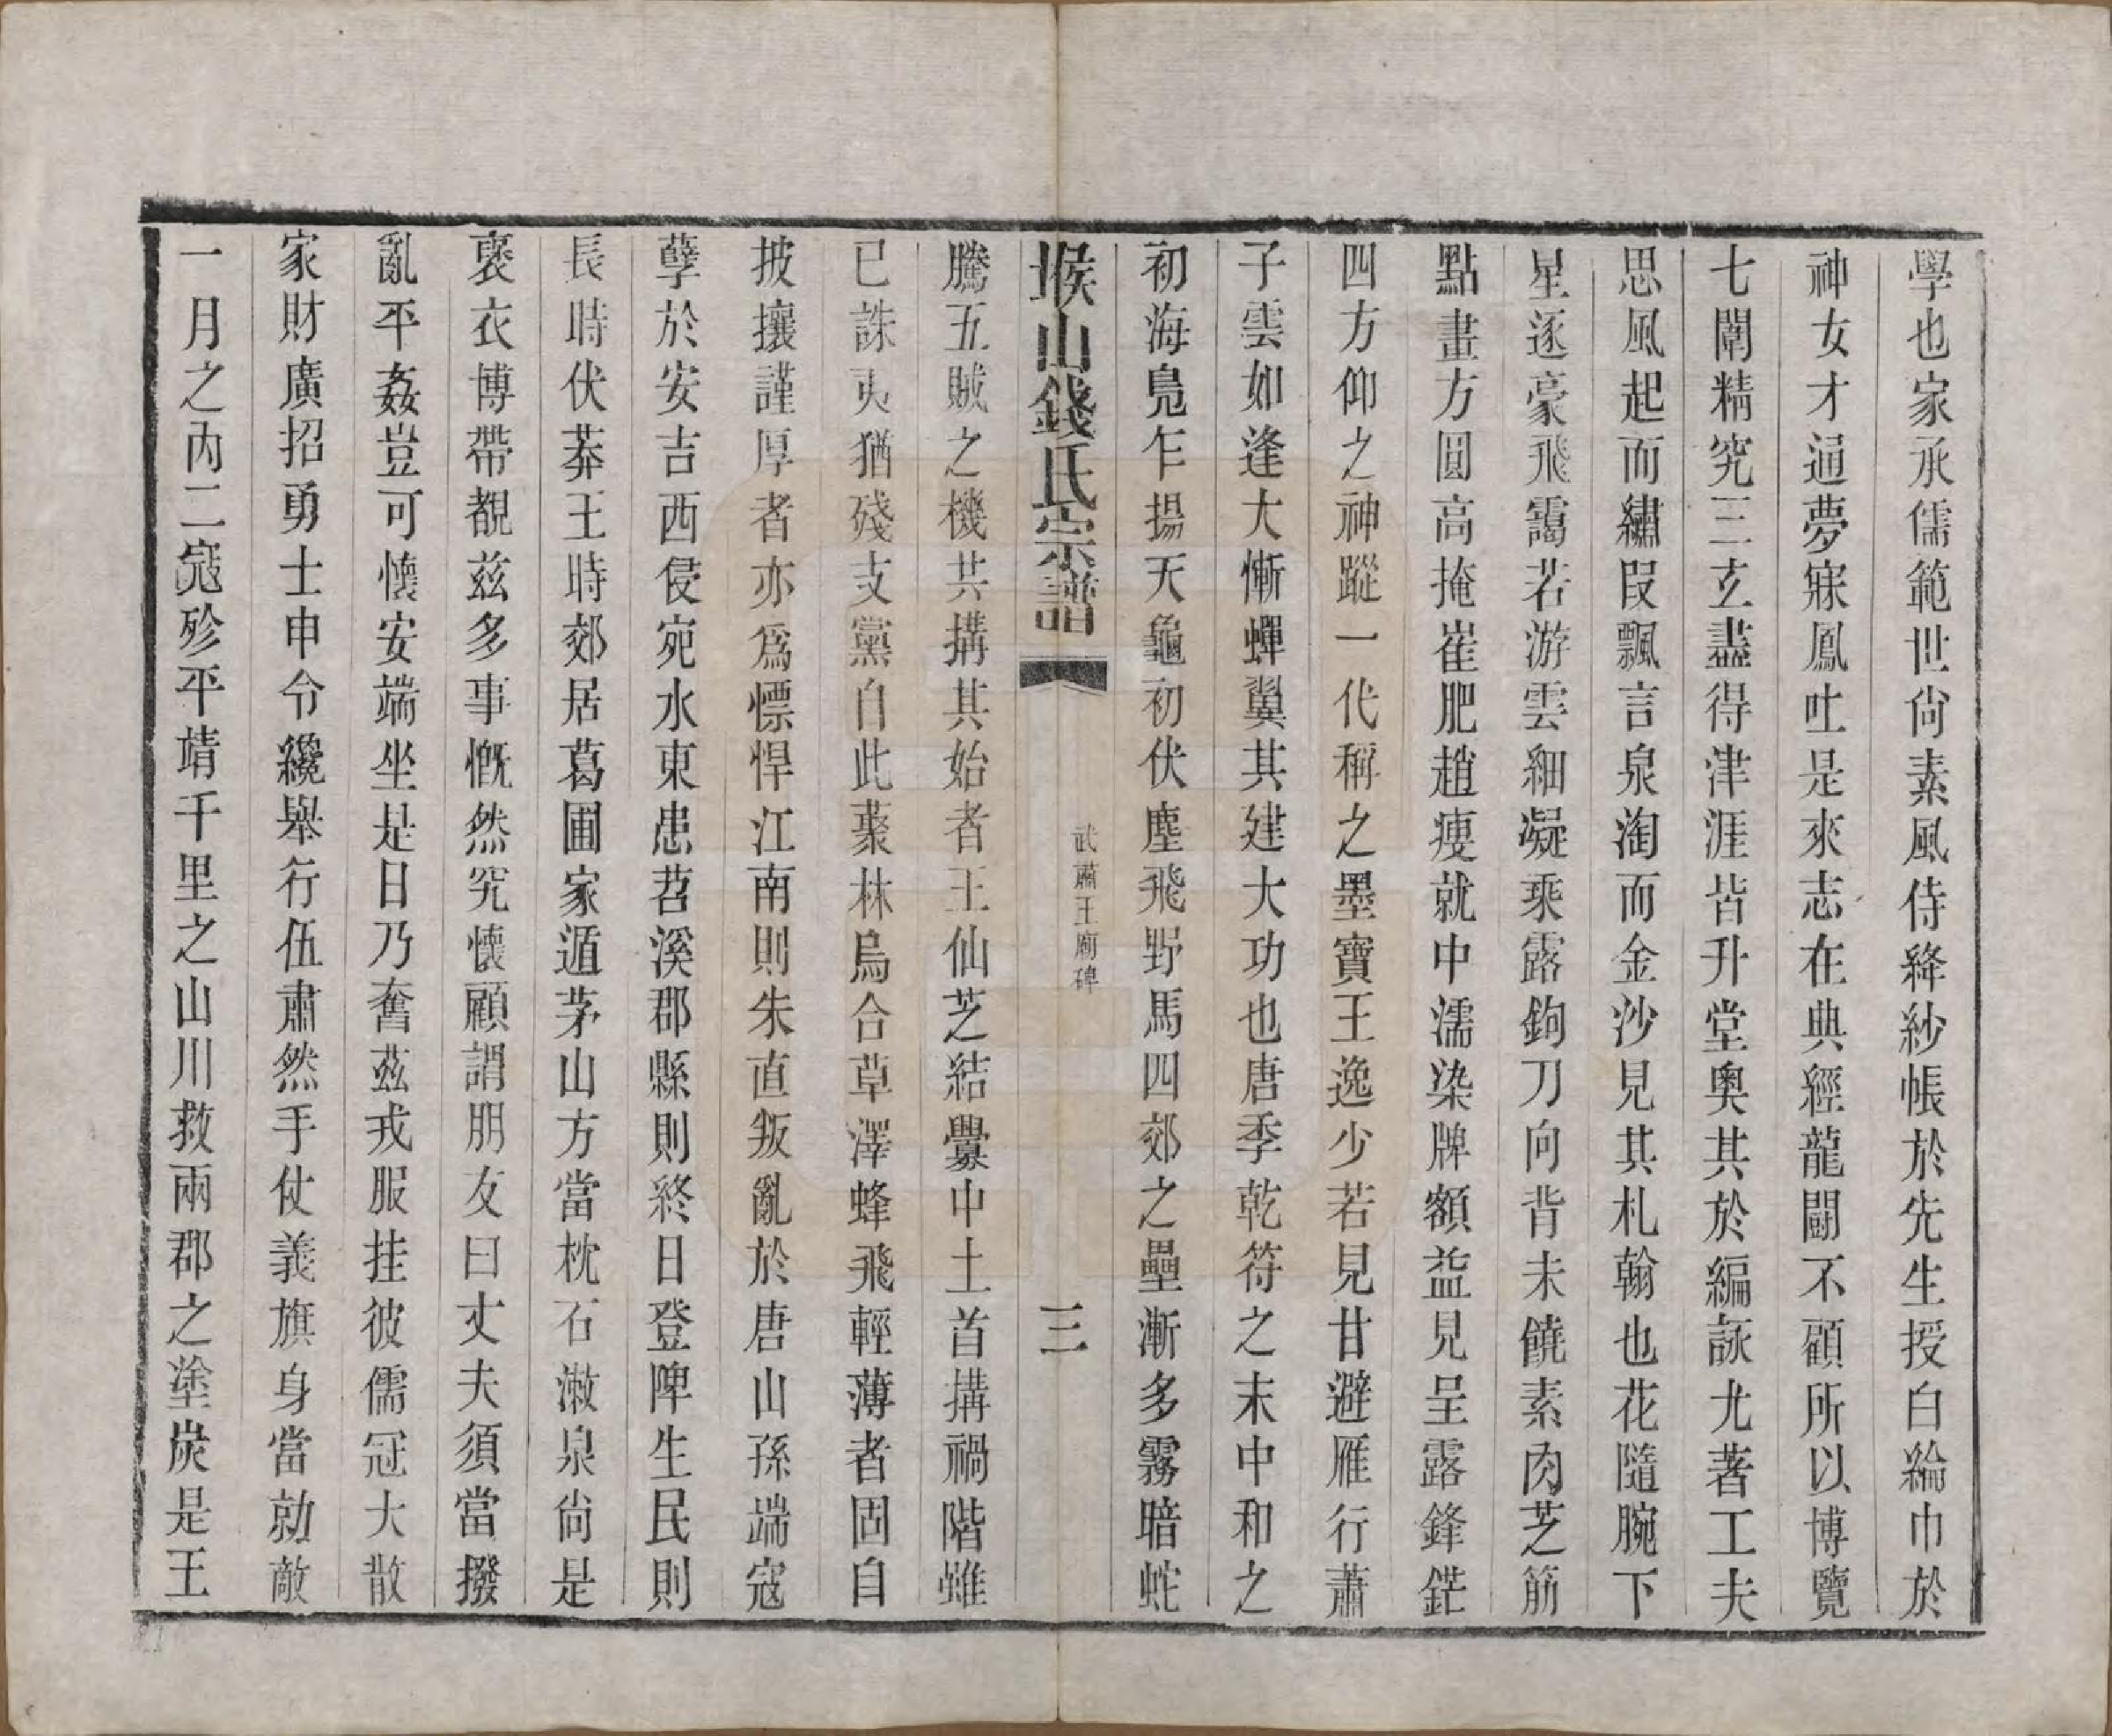 學也家承儒範世尙素風侍絳紗帳於先生授白綸巾於
神女才通夢寐鳳吐是來志在典經龍鬬不顧所以博覽
七閣精究三玄盡得津涯皆升堂奧其於編詠尤著工夫
思風起而繡段飄言泉淘而金沙見其札翰也花隨腕下
星逐豪飛靄若游雲細凝乘露鉤刀向背未饒素肉芝筋
點畫方圓高掩崔肥趙瘦就中濡染牌額益見呈露鋒鋩
四方仰之神蹤一代稱之墨寶王逸少若見甘避雁行蕭
子雲如逢大慚蟬翼其建大功也唐季乾符之末中和之
初海鳧乍揚天龜初伏塵飛野馬四郊之壘漸多霧暗蛇
堠山錢氏宗譜 武肅王廟碑 三
騰五賊之機共搆其始者王仙芝結釁中土首搆禍階雖
已誅夷猶殘支黨自此藂林烏合草澤蜂飛輕薄者固自
披攘謹厚者亦爲慓悍江南則朱直叛亂於唐山孫端寇
孽於安吉西侵宛水東患苕溪郡縣則終日登陴生民則
長時伏莽王時郊居葛圃家遁茅山方當枕石漱泉尙是
褒衣博帶覩兹多事慨然究懷顧謂朋友曰丈夫須當撥
亂平姦豈可懷安端坐是日乃奮兹戎服挂彼儒冠大散
家財廣招勇士申令纔舉行伍肅然手仗義旗身當勍敵
一月之內二寇殄平靖千里之山川救兩郡之塗炭是王